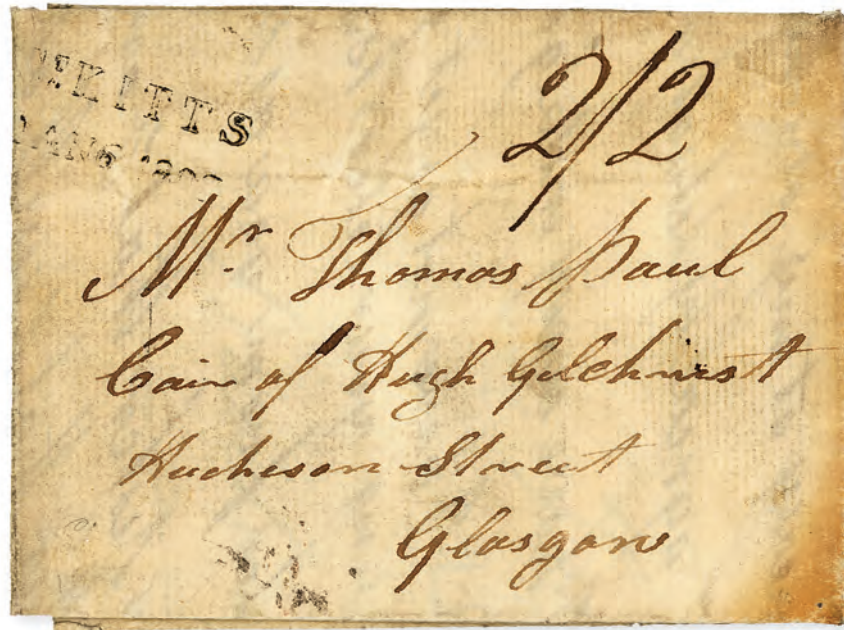 ST KITTS
2/2
Mr Thomas Paul
Cair of Hugh Gilchrist
Hucheson Street
Glasgow